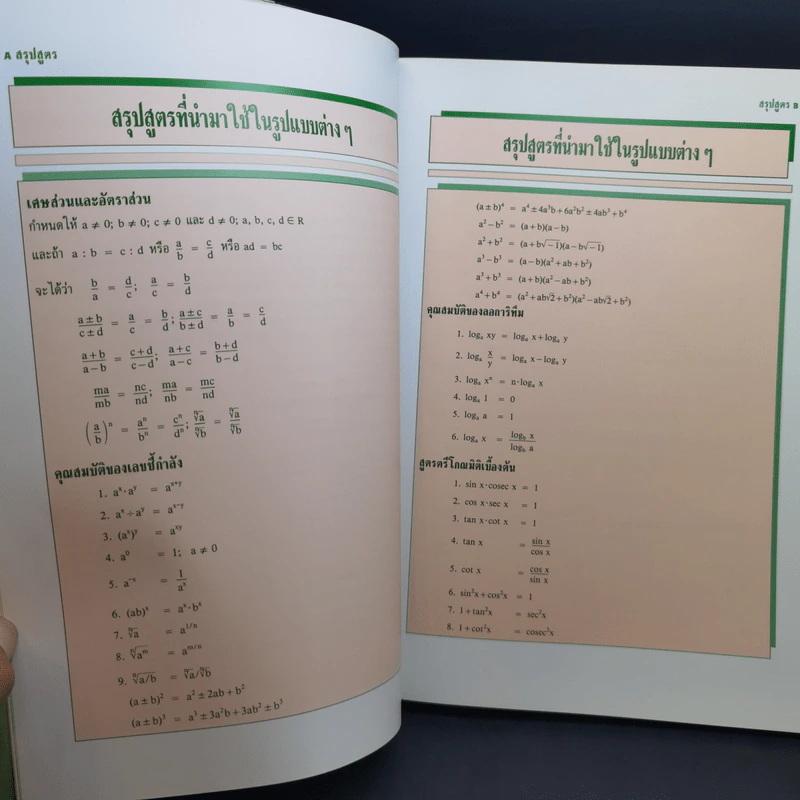 A สรุปสูตร
สรุปสูตรที่นำมาใช้ในรูปแบบต่าง ๆ
เศษส่วนและอัตราส่วน
กำหนดให้ a ≠ 0; b ≠ 0; c ≠ 0 และ d ≠ 0; a, b, c, d ∈ R
และถ้า a : b = c : d หรือ a/b = c/d หรือ ad = bc
จะได้ว่า b/a = d/c; a/c = b/d
(a±b)/(c±d) = a/c = b/d; (a±c)/(b±d) = a/b = c/d
(a+b)/(a−b) = (c+d)/(c−d); (a+c)/(a−c) = (b+d)/(b−d)
ma/mb = nc/nd; ma/nb = mc/nd
(a/b)ⁿ = aⁿ/bⁿ = cⁿ/dⁿ; ⁿ√a/ⁿ√b = ⁿ√a/ⁿ√b
คุณสมบัติของเลขชี้กำลัง
1. aˣ·aʸ = aˣ⁺ʸ
2. aˣ÷aʸ = aˣ⁻ʸ
3. (aˣ)ʸ = aˣʸ
4. a⁰ = 1; a ≠ 0
5. a⁻ˣ = 1/aˣ
6. (ab)ˣ = aˣ·bˣ
7. ⁿ√a = a^(1/n)
8. ⁿ√aᵐ = a^(m/n)
9. ⁿ√a/b = ⁿ√a/ⁿ√b
(a±b)² = a²±2ab+b²
(a±b)³ = a³±3a²b+3ab²±b³
สรุปสูตร B
สรุปสูตรที่นำมาใช้ในรูปแบบต่าง ๆ
(a±b)⁴ = a⁴±4a³b+6a²b²±4ab³+b⁴
a²−b² = (a+b)(a−b)
a²+b² = (a+b√−1)(a−b√−1)
a³−b³ = (a−b)(a²+ab+b²)
a³+b³ = (a+b)(a²−ab+b²)
a⁴+b⁴ = (a²+ab√2+b²)(a²−ab√2+b²)
คุณสมบัติของลอการิทึม
1. logₐ xy = logₐ x+logₐ y
2. logₐ x/y = logₐ x−logₐ y
3. logₐ xⁿ = n·logₐ x
4. logₐ 1 = 0
5. logₐ a = 1
6. logₐ x = log_b x/log_b a
สูตรตรีโกณมิติเบื้องต้น
1. sin x·cosec x = 1
2. cos x·sec x = 1
3. tan x·cot x = 1
4. tan x = sin x/cos x
5. cot x = cos x/sin x
6. sin²x+cos²x = 1
7. 1+tan²x = sec²x
8. 1+cot²x = cosec²x